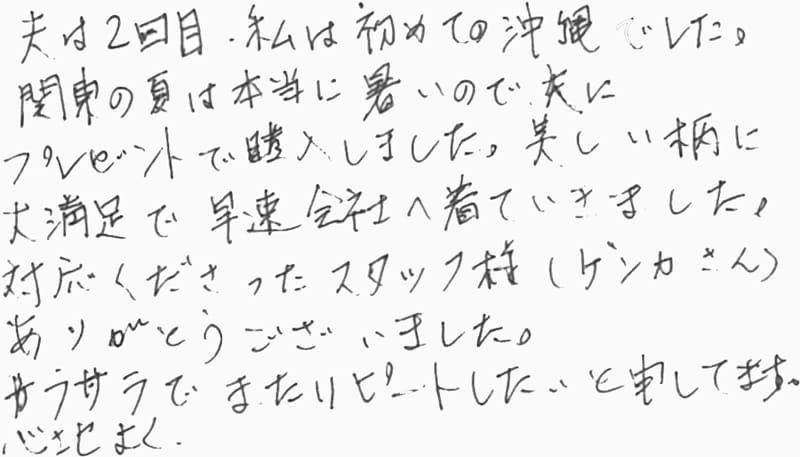 夫は2回目.私は初めての沖縄でした。
関東の夏は本当に暑いので夫に
プレゼントで購入しました。美しい柄に
大満足で早速会社へ着ていきました。
対応くださったスタッフ様(ゲンカさん)
ありがとうございました。
サラサラでまたリピートしたいと申してます。
心地よく.